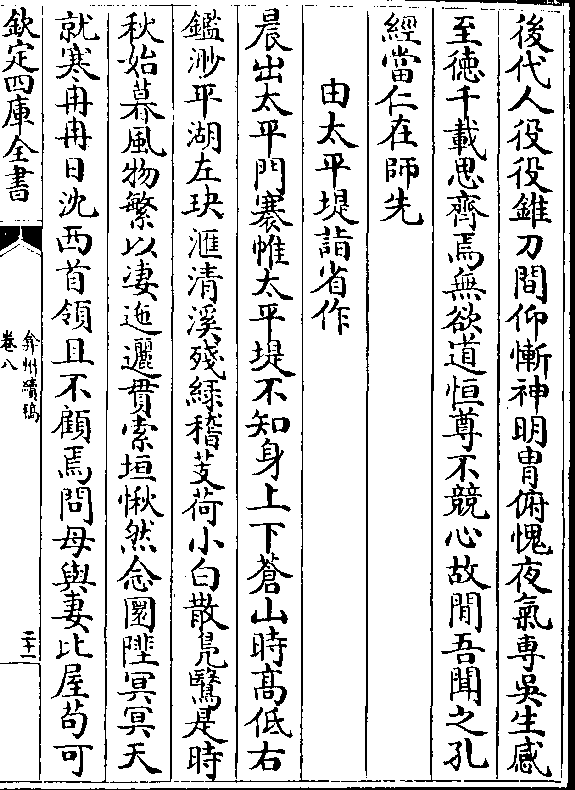 後代人役役錐刀間仰慚神明胄俯愧夜氣専吳生感
至德千載思齊焉無欲道恒尊不競心故閒吾聞之孔
經當仁在師先
由太平堤詣省作
晨出太平門褰帷太平堤不知身上下蒼山時髙低右
鑑渺平湖左玦滙清溪殘綠稽芰荷小白散鳬鷖是時
秋始暮風物繁以凄迤邐貫索垣愀然念圜陛冥冥天
就寒冉冉日沈西首領且不顧焉問母與妻比屋苟可
欽定四庫全書
弇州續稿
卷八
二十一